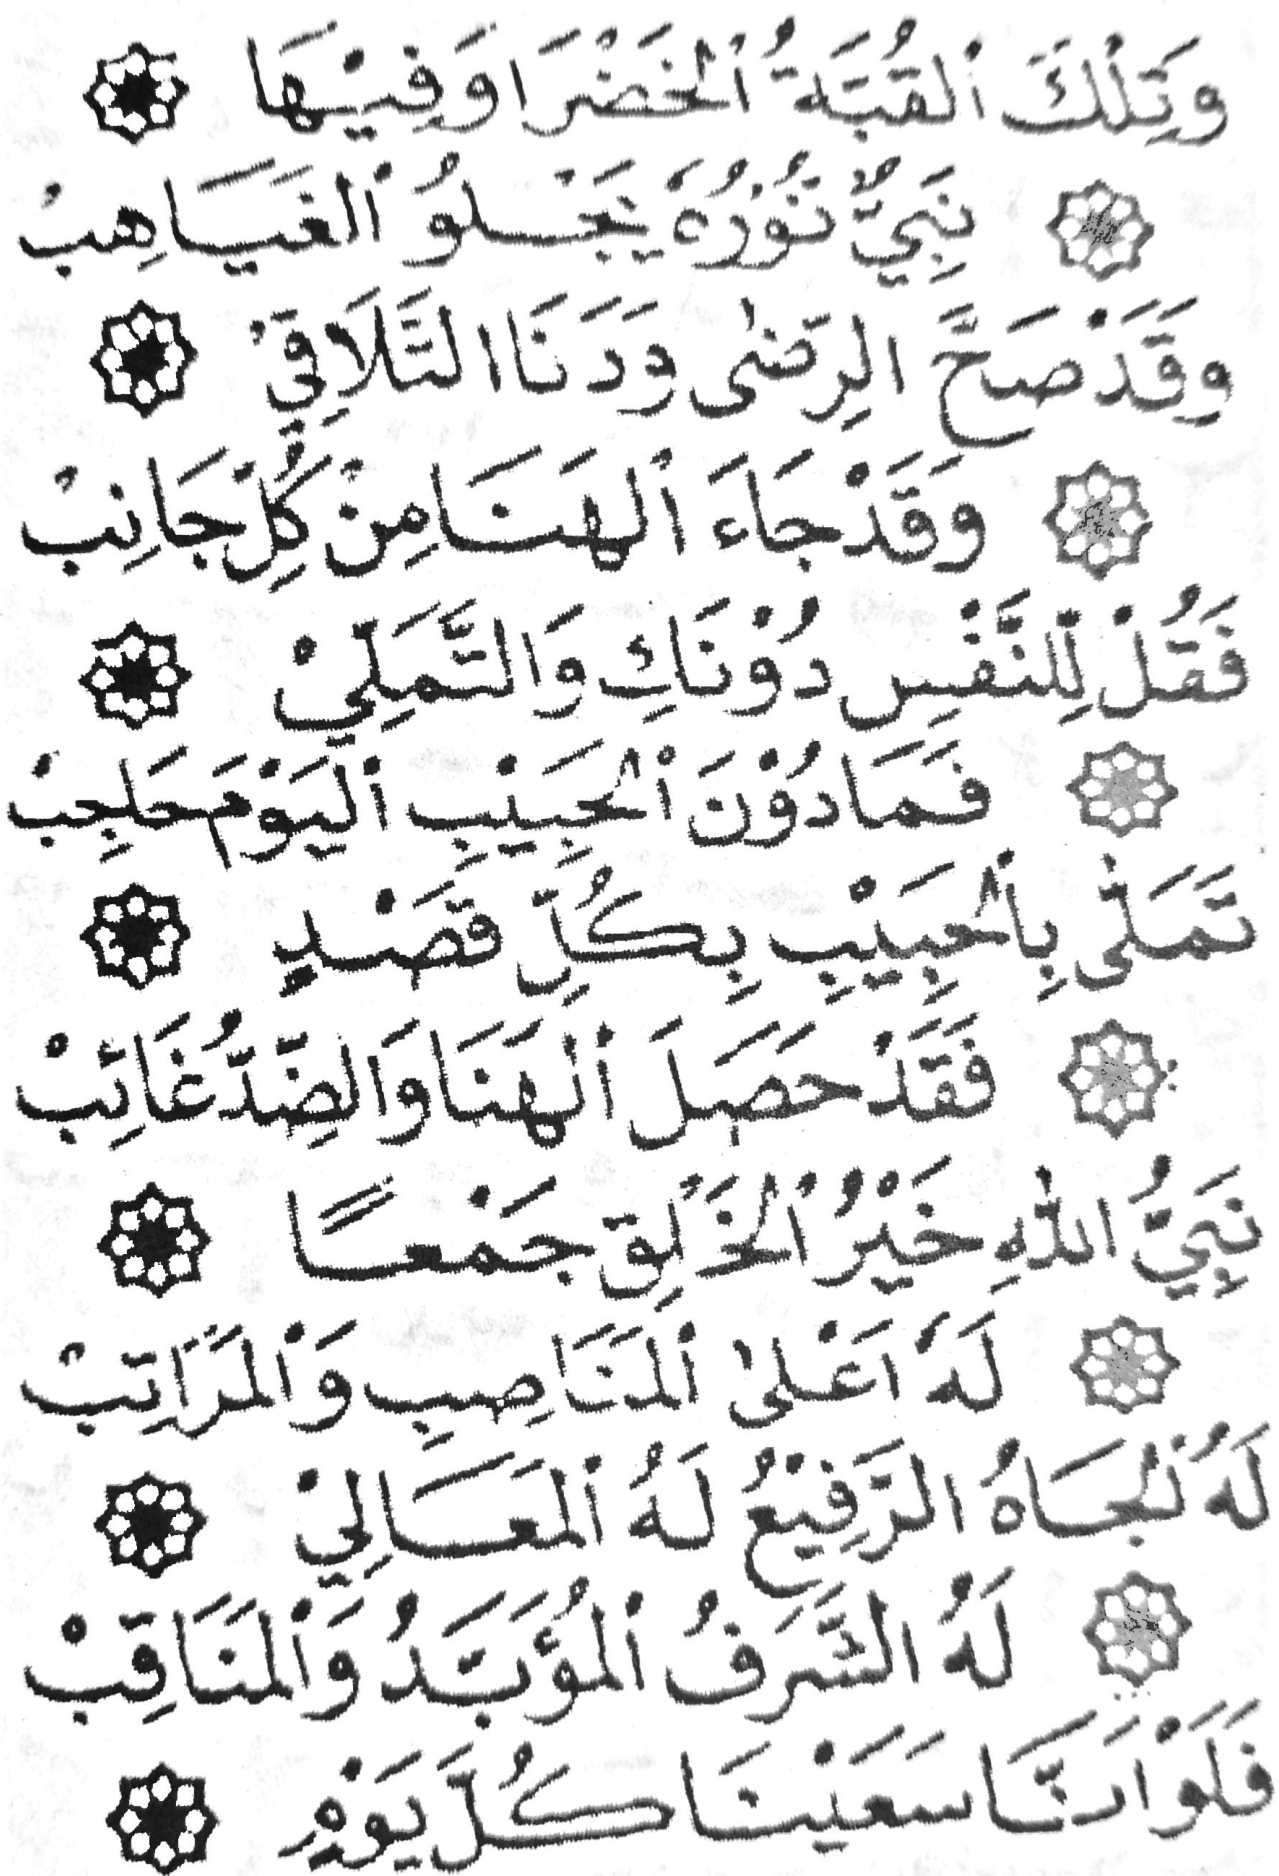 وَتِلْكَ ٱلقُبَّةُ ٱلْخَضْرَا وَفِيْهَا
نَبِيٌّ نُوْرُهُ يَجْلُو ٱلغَيَاهِبْ
وَقَدْ صَحَّ الرِضَى وَدَنَا التَّلَاقِيْ
وَقَدْ جَاءَ ٱلهَنَا مِنْ كُلِّ جَانِبْ
فَقُلْ لِلنَّفْسِ دُوْنَكِ وَالتَّمَلِّيْ
فَمَا دُوْنَ ٱلْحَبِيْبِ ٱليَوْمَ حَاجِبْ
تَمَلَّى بِٱلْحَبِيْبِ بِكُلِّ قَصْدٍ
فَقَدْ حَصَلَ ٱلْهَنَا وَالضِّدُّ غَائِبْ
نَبِيُّ اللهِ خَيْرُ ٱلْخَلْقِ جَمْعًا
لَهُ اَعْلَى ٱلمَنَاصِبِ وَٱلمَرَاتِبْ
لَهُ ٱلْجَاهُ الرَّفِيْعُ لَهُ ٱلمَعَالِيْ
لَهُ الشَّرَفُ ٱلمُؤَبَّدُ وَٱلمَنَاقِبْ
فَلَوْ اَنَّا سَعَيْنَا كُلَّ يَوْمٍ